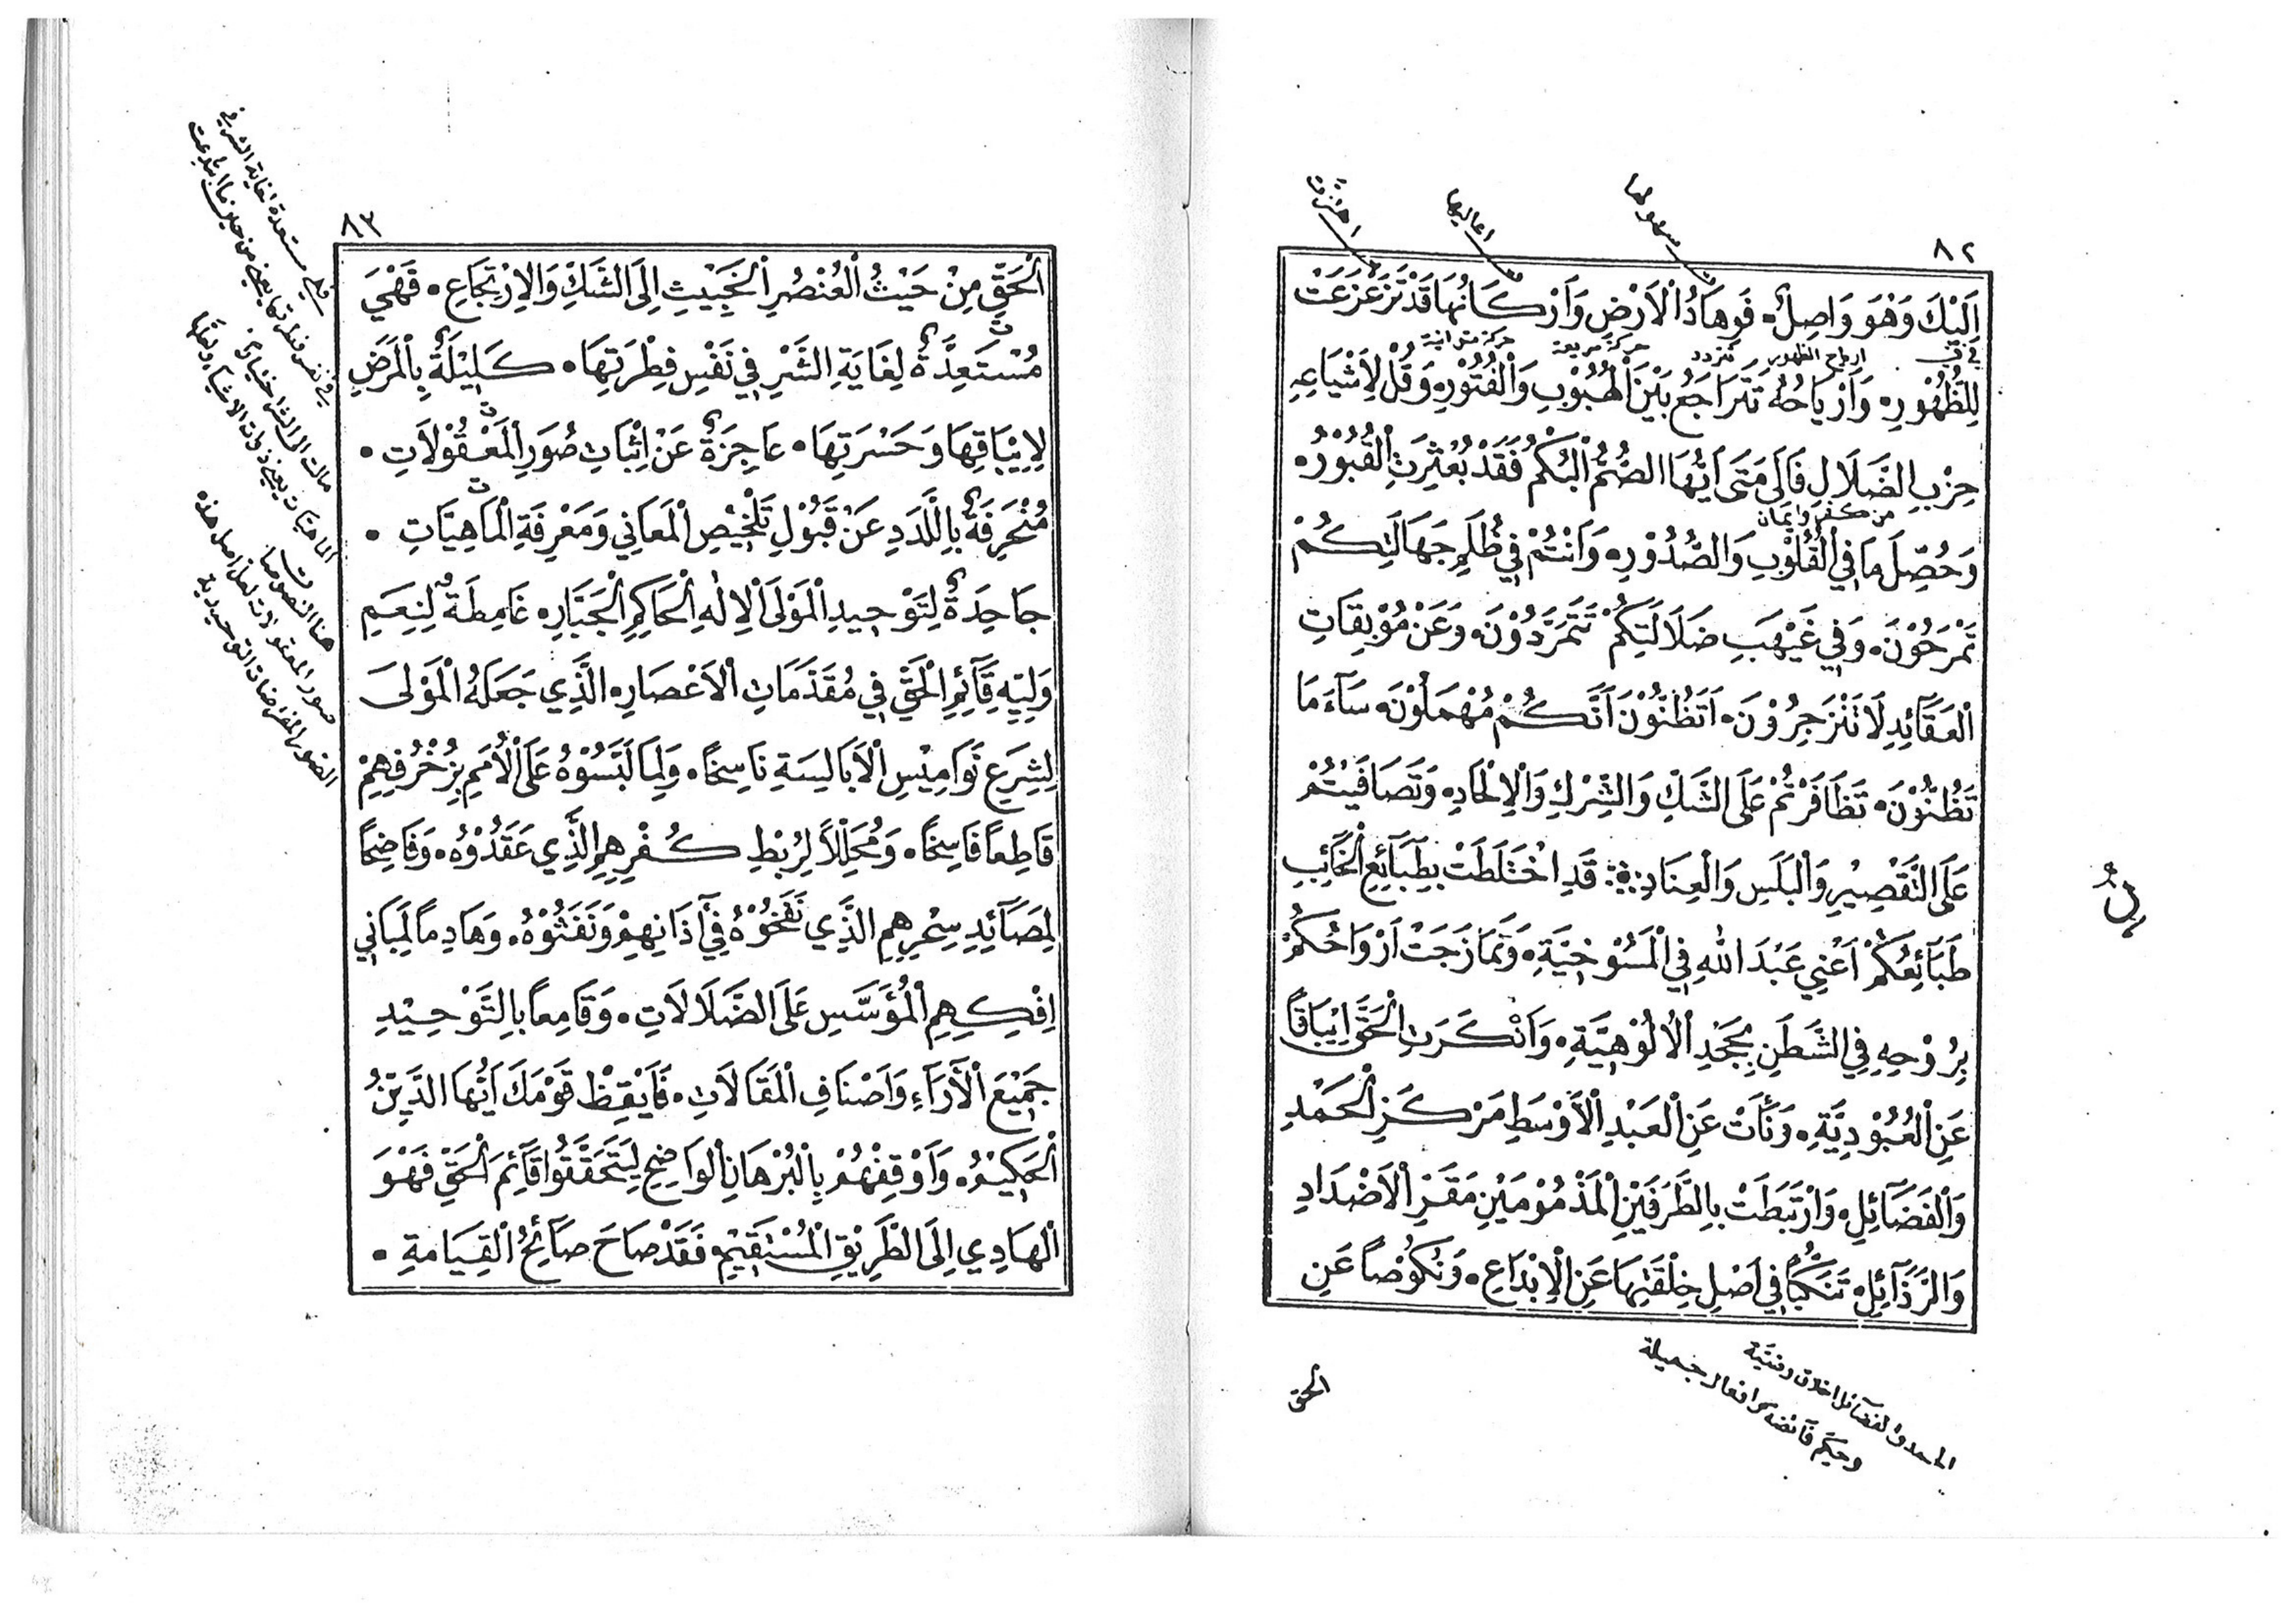 ٨٢
سهولها
اعاليها
اهتزت
اِلَيْكَ وَهْوَ وَاصِلٌ. فَوِهَادُ الْاَرْضِ وَاَرْكَانُهَا قَدْ تَزَعْزَعَتْ
ارياح الظهور تتردد حركة سريعة
لِلظُّهُوْرِ. وَاَرْيَاحُهُ تَتَرَاجَعُ بَيْنَ الْهُبُوْبِ وَالْفُتُوْرِ. وَقُلْ لِاَشْيَاعِهِ
حِزْبِ الضَّلَالِ فَاِلَى مَتَى اَيُّهَا الصُّمُّ الْبُكْمُ فَقَدْ بُعْثِرَتِ الْقُبُوْرُ.
من كفر وايمان
وَحُصِّلَ مَا فِي الْقُلُوْبِ وَالصُّدُوْرِ. وَاَنْتُمْ فِي ظُلَمِ جَهَالَتِكُمْ
تَمْرَحُوْنَ. وَفِي غَيْهَبِ ضَلَالَتِكُمْ تَتَمَرَّدُوْنَ. وَعَنْ مُوْبِقَاتِ
الْعَقَائِدِ لَا تَنْزَجِرُوْنَ. اَتَظُنُّوْنَ اَنَّكُمْ مُهْمَلُوْنَ. سَآءَ مَا
تَظُنُّوْنَ. تَظَافَرْتُمْ عَلَى الشَّكِّ وَالشِّرْكِ وَالْاِلْحَادِ. وَتَصَافَيْتُمْ
عَلَى التَّقْصِيْرِ وَالْبَلَسِ وَالْعِنَادِ. قَدِ اخْتَلَطَتْ بِطَبَآئِعِ الْخَآئِبِ
طَبَآئِعُكُمْ اَعْنِي عَبْدَ اللهِ فِي الْمَسُوْخِيَّةِ. وَتَمَازَجَتْ اَرْوَاحُكُمْ
بِرُوْحِهِ فِي الشَّطَنِ بِجَحْدِ الْاُلُوْهِيَّةِ. وَاَنْكَرَتِ الْحَقَّ اِيْبَاقًا
عَنِ الْعُبُوْدِيَّةِ. وَنَأَتْ عَنِ الْعَبْدِ الْاَوْسَطِ مَرْكَزِ الْحَمْدِ
وَالْفَضَآئِلِ. وَارْتَبَطَتْ بِالطَّرَفَيْنِ الْمَذْمُوْمَيْنِ مَقَرِّ الْاَضْدَادِ
وَالرَّذَآئِلِ. تَنَكُّبًا فِي اَصْلِ خِلْقَتِهَا عَنِ الْاِبْدَاعِ. وَنُكُوْصًا عَنِ
الحمد والفضآئل اخلاق دينية
وحكم فآئضة وافعال جميلة
الحق
٨٣
الْحَقِّ مِنْ حَيْثُ الْعُنْصُرِ الْخَبِيْثِ اِلَى الشَّكِّ وَالْاِرْتِجَاعِ. فَهْيَ
مُسْتَعِدَّةٌ لِغَايَةِ الشَّرِّ فِي نَفْسِ فِطْرَتِهَا. كَلِيْلَةٌ بِالْمَرَضِ
لِاِيْبَاقِهَا وَحَسْرَتِهَا. عَاجِزَةٌ عَنْ اِثْبَاتِ صُوَرِ الْمَعْقُوْلَاتِ.
مُنْحَرِفَةٌ بِاللَّدَدِ عَنْ قَبُوْلِ تَلْخِيْصِ الْمَعَانِي وَمَعْرِفَةِ الْمَاهِيَّاتِ.
جَاحِدَةٌ لِتَوْحِيدِ الْمَوْلَى الْاِلٰهِ الْحَاكِمِ الْجَبَّارِ. غَامِطَةٌ لِنِعَمِ
وَلِيِّهِ قَآئِمِ الْحَقِّ فِي مُقَدَّمَاتِ الْاَعْصَارِ. الَّذِي جَعَلَهُ الْمَوْلَى
لِشَرِعِ نَوَامِيْسِ الْاَبَالِسَةِ نَاسِخًا. وَلِمَا لَبَّسُوْهُ عَلَى الْاُمَمِ بِزُخْرُفِهِمْ
قَاطِعًا فَاسِخًا. وَمُحَلِّلًا لِرُبْطِ كُفْرِهِمِ الَّذِي عَقَدُوْهُ. وَفَاضِحًا
لِمَصَآئِدِ سِحْرِهِمِ الَّذِي نَفَخُوْهُ فِي آذَانِهِمْ وَنَفَثُوْهُ. وَهَادِمًا لِمَبَانِي
اِفْكِهِمِ الْمُؤَسَّسِ عَلَى الضَّلَالَاتِ. وَقَامِعًا بِالتَّوْحِيْدِ
جَمِيْعَ الْآرَآءِ وَاَصْنَافِ الْمَقَالَاتِ. فَاَيْقِظْ قَوْمَكَ اَيُّهَا الدَّيِّنُ
الْحَكِيْمُ. وَاَوْقِفْهُمْ بِالْبُرْهَانِ الْوَاضِحِ لِيَتَحَقَّقُوا قَآئِمَ الْحَقِّ فَهْوَ
الْهَادِي اِلَى الطَّرِيْقِ الْمُسْتَقِيْمِ. فَقَدْ صَاحَ صَآئِحُ الْقِيَامَةِ.